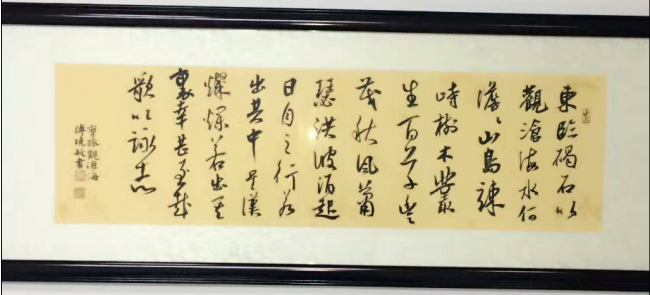 東臨碣石以
觀滄海水何
澹〻山島竦
峙樹木叢
生百草豐
茂秋風蕭
瑟洪波涌起
日月之行若
出其中星漢
燦爛若出其
裏幸甚至哉
歌以詠志
曹操觀滄海
傅曉敏書